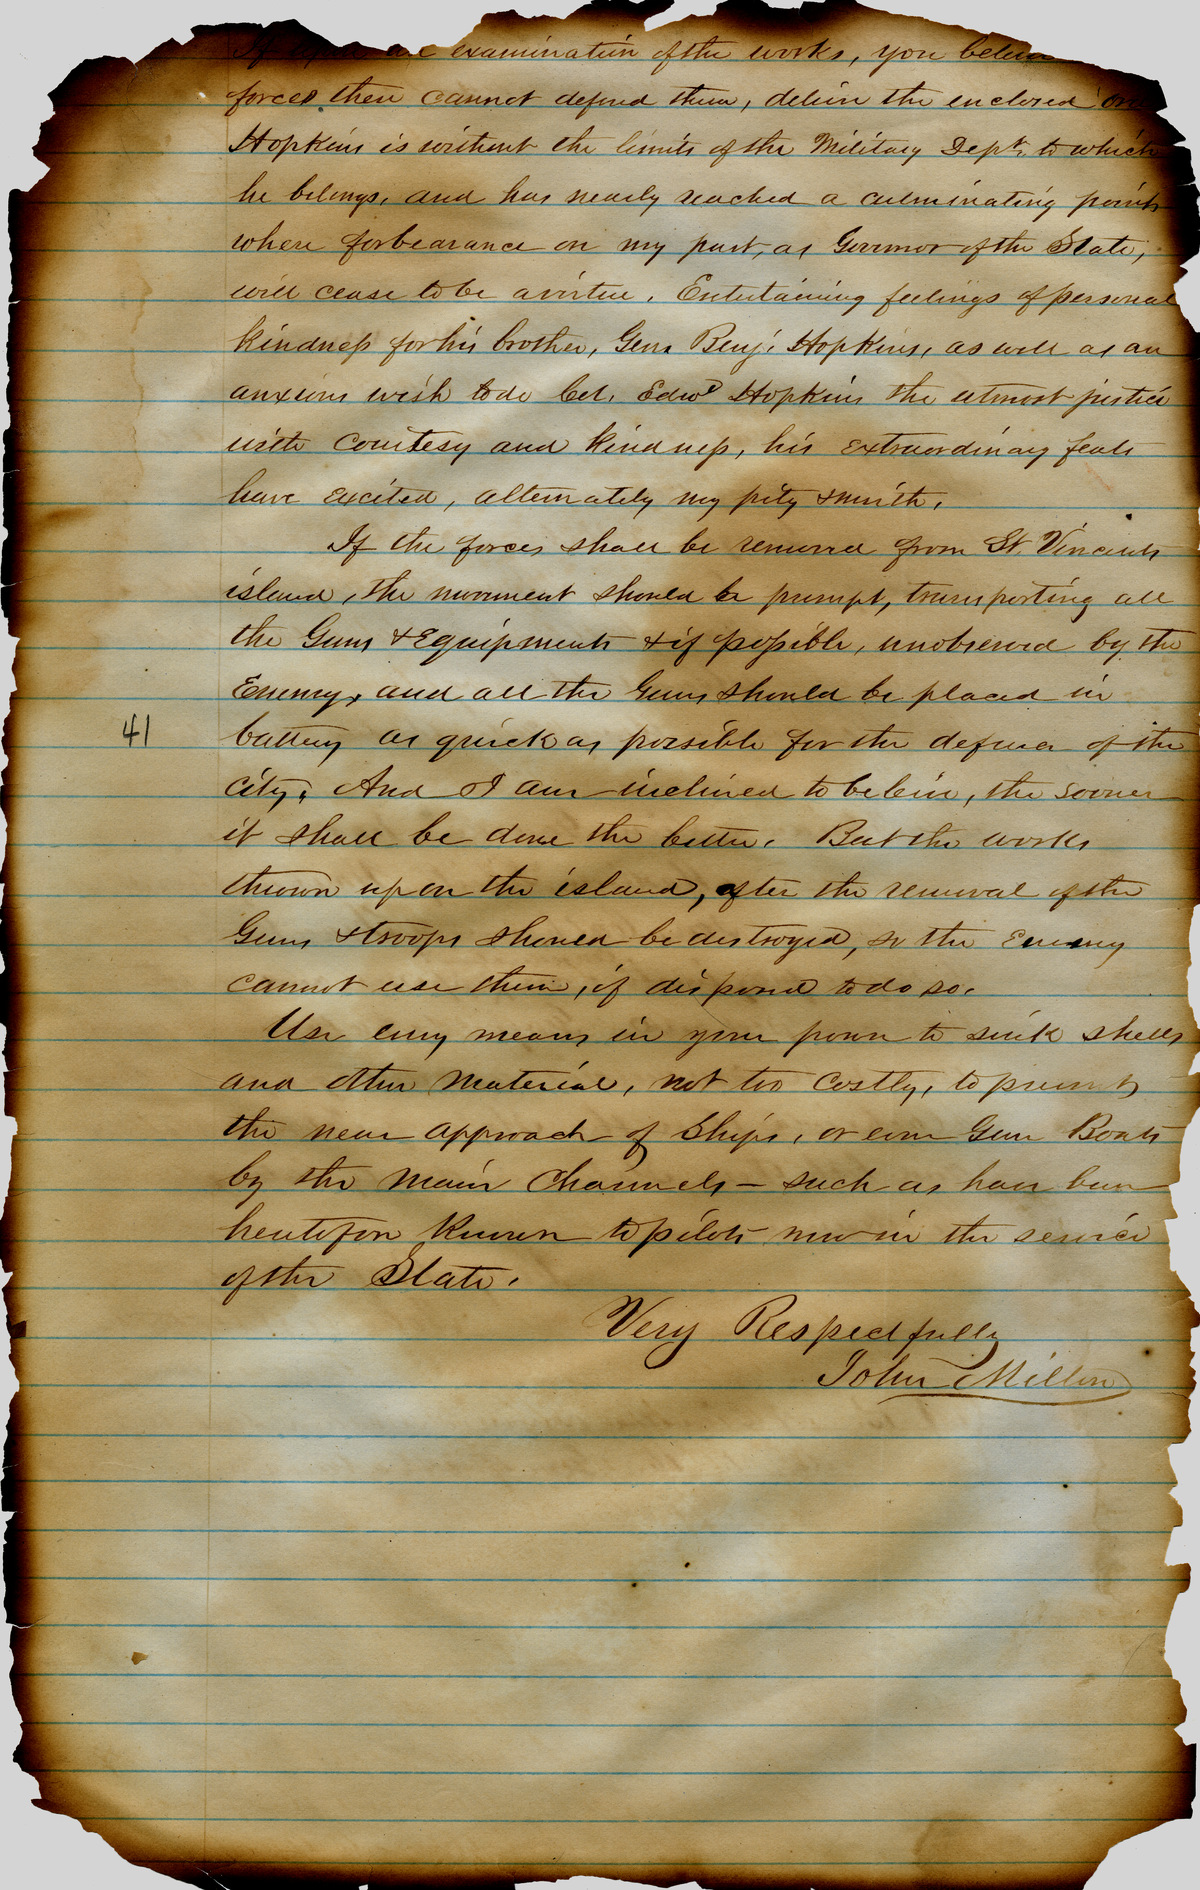 If upon an examination of the works, you believe
forces there cannot defend them, deliver the enclosed
Hopkins is without the limits of the Military Dept. to which
he belongs, and has nearly reached a culminating point
where forbearance on my part, as Governor of the State,
will cease to be a virtue. Entertaining feelings of personal
kindness for his brother, Genl Benj. Hopkins, as well as an
anxious wish to do Col. Edwd Hopkins the utmost justice
with courtesy and kindness, his extraordinary feats
have excited, alternately my pity & mirth.
If the forces shall be removed from St. Vincents
island, the movement should be prompt, transporting all
the Guns & Equipments & if possible, unobserved by the
Enemy, and all the Guns should be placed in
41
battery as quick as possible for the defence of the
city. And I am inclined to believe, the sooner
it shall be done the better. But the works
thrown up on the island, after the removal of the
Guns & troops should be destroyed, so the Enemy
cannot use them, if disposed to do so.
Use every means in your power to sink shells
and other material, not too costly, to prevent
the near approach of Ships, or even Gun Boats
by the main Channels – such as have been
heretofore known to pilots now in the service
of the State.
Very Respectfully
John Milton